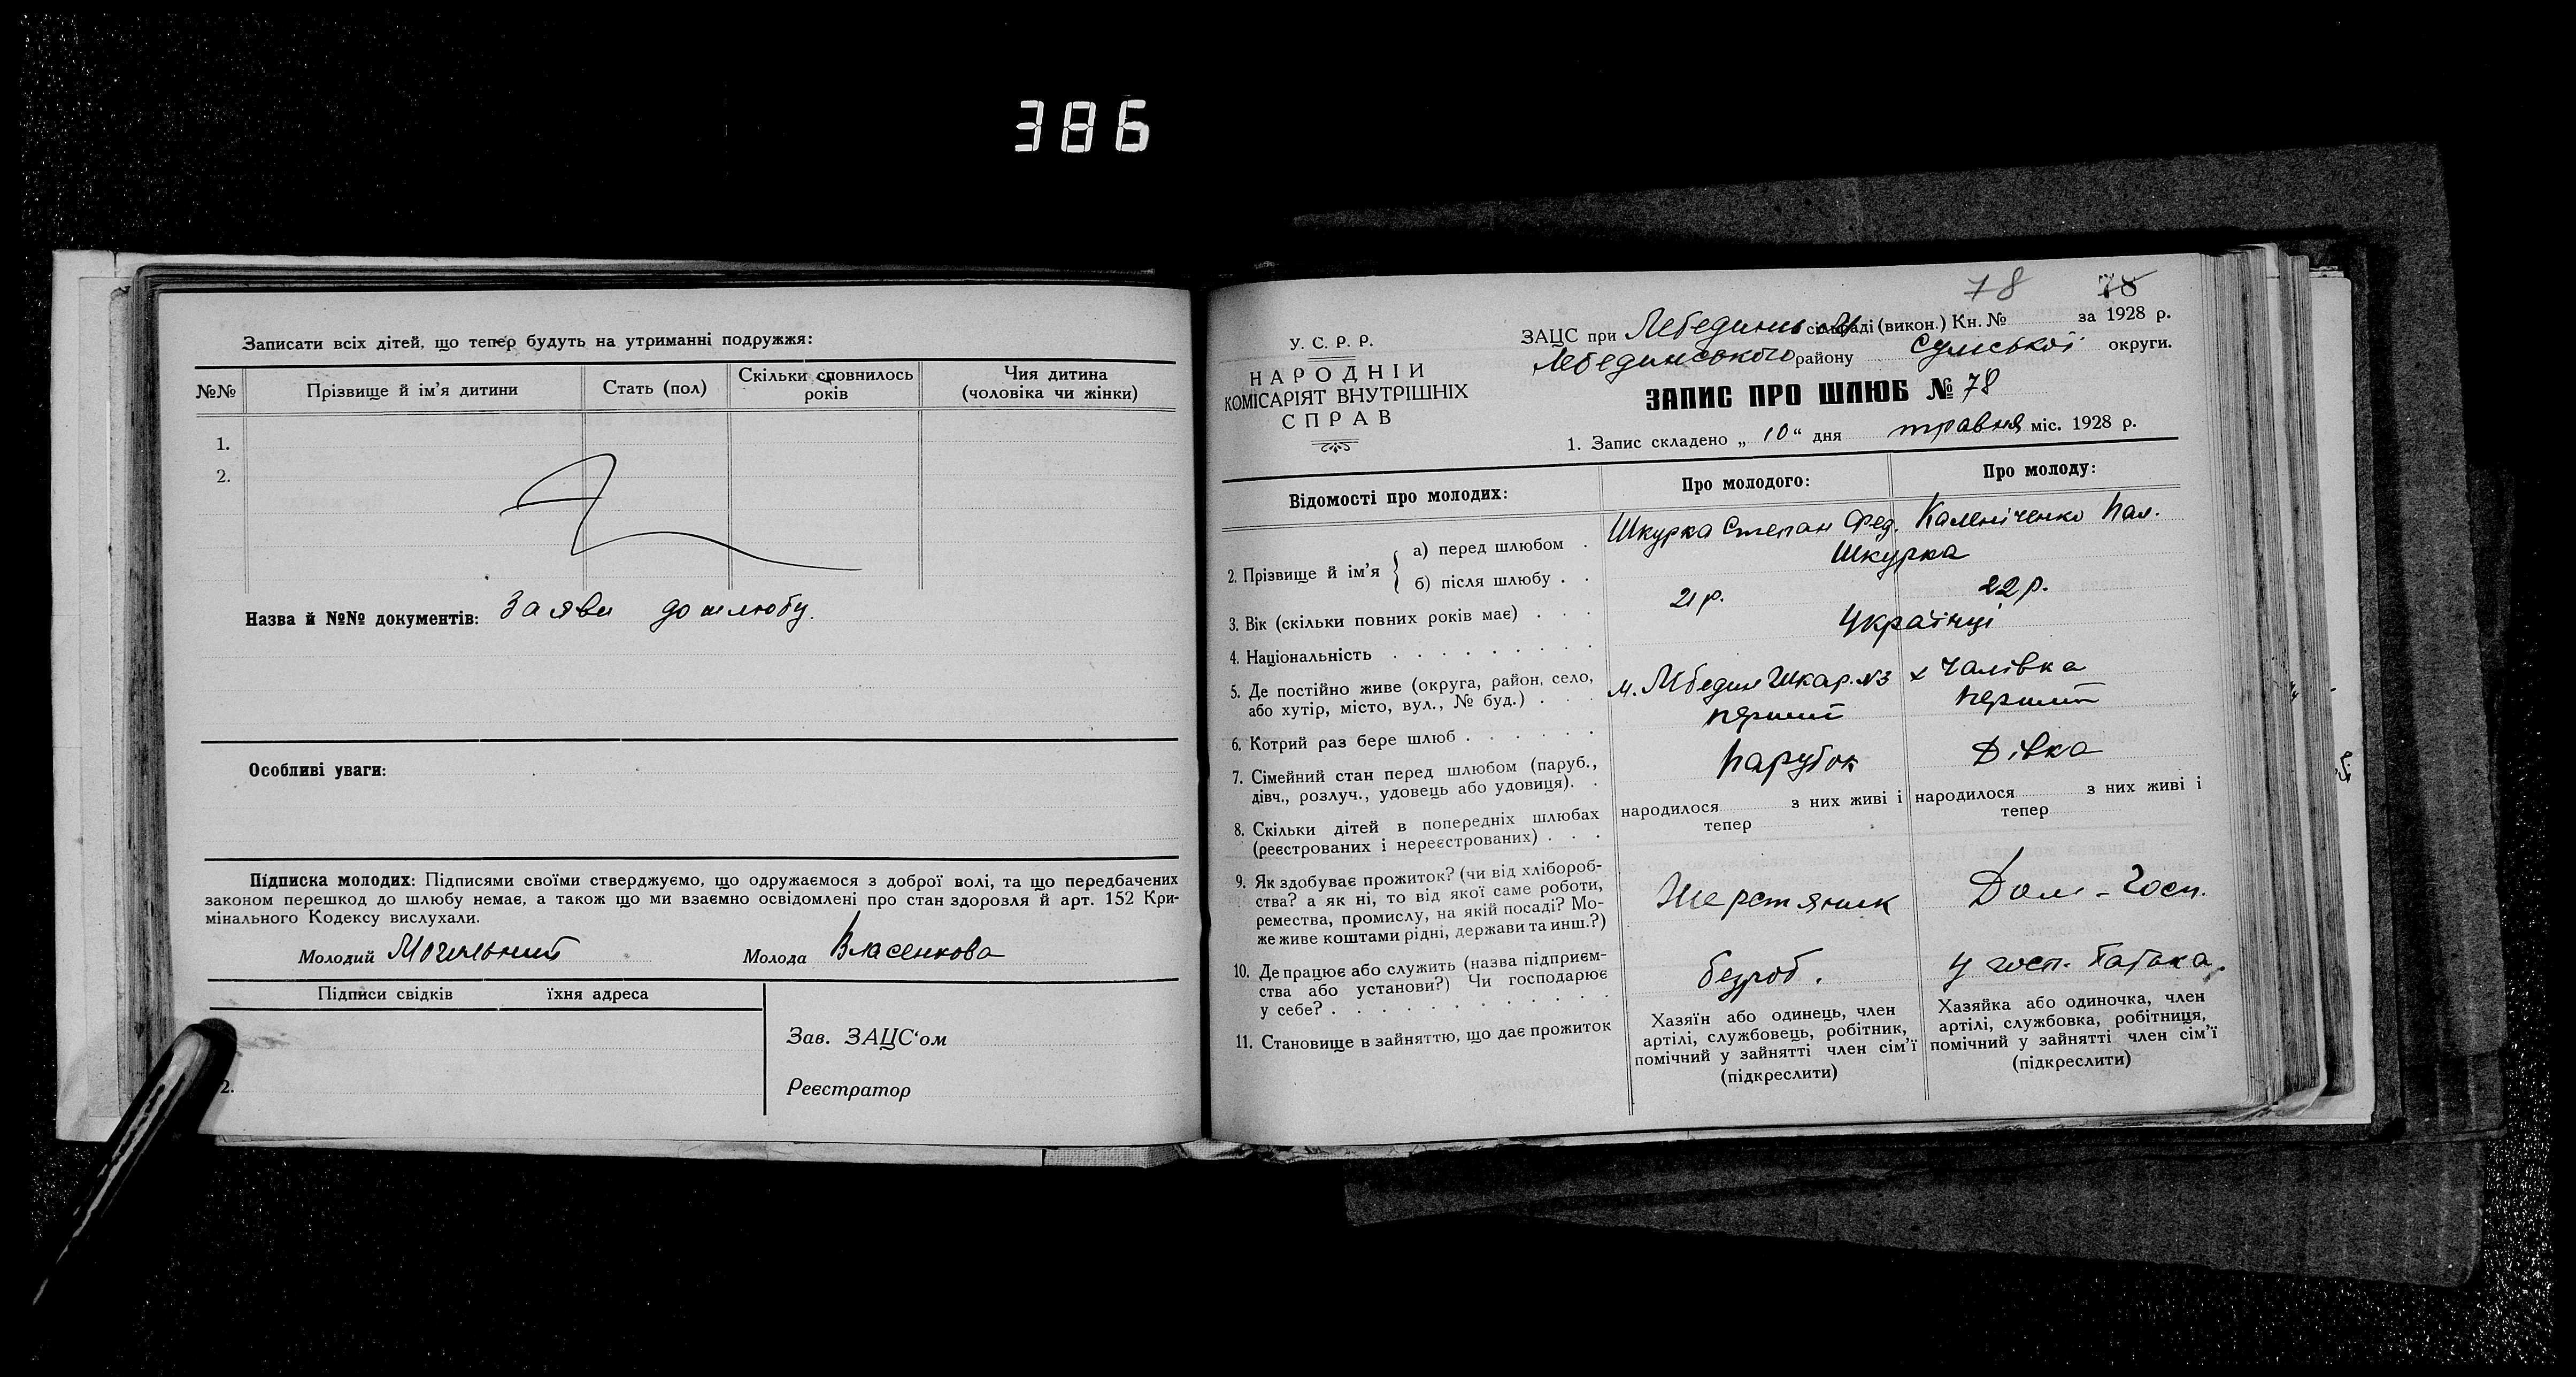 386
Записати всіх дітей, що тепер будуть на утриманні подружжя:
№№ Прізвище й ім'я дитини Стать (пол) Скільки сповнилось років Чия дитина (чоловіка чи жінки)
1.
2.
Назва й №№ документів: Заяви до шлюбу.
Особливі уваги:
Підписка молодих: Підписями своїми стверджуємо, що одружаємося з доброї волі, та що передбачених
законом перешкод до шлюбу немає, а також що ми взаємно освідомлені про стан здоровля й арт. 152 Кри-
мінального Кодексу вислухали.
Молодий Могильний Молода Власенкова
Підписи свідків їхня адреса
Зав. ЗАЦС'ом
2.
Реєстратор
78 78
У. С. Р. Р.
НАРОДНІЙ
КОМІСАРІЯТ ВНУТРІШНІХ
СПРАВ
ЗАЦС при Лебединськ сільраді (викон.) Кн. № за 1928 р.
Лебединського району Сумської округи.
ЗАПИС ПРО ШЛЮБ № 78
1. Запис складено „ 10 “ дня травня міс. 1928 р.
Відомості про молодих: Про молодого: Про молоду:
2. Прізвище й ім'я
а) перед шлюбом . Шкурка Степан Фед. Каленіченко Пал.
б) після шлюбу . . Шкурка
3. Вік (скільки повних років має) . . . 21 р. 22 р.
4. Національність . . . . . . . . . Українці
5. Де постійно живе (округа, район, село,
або хутір, місто, вул., № буд.) . . . м. Лебедин Шкар. №3 х Чалівка
6. Котрий раз бере шлюб . . . . . . перший перший
7. Сімейний стан перед шлюбом (паруб.,
дівч., розлуч., удовець або удовиця). . Парубок Дівка
8. Скільки дітей в попередніх шлюбах
(реєстрованих і нереєстрованих) . . .
народилося з них живі і
тепер
народилося з них живі і
тепер
9. Як здобуває прожиток? (чи від хлібороб-
ства? а як ні, то від якої саме роботи,
ремества, промислу, на якій посаді? Мо-
же живе коштами рідні, держави та инш.?)
Шерстяник Дом-госп.
10. Де працює або служить (назва підприєм-
ства або установи?) Чи господарює
у себе? . . . . . . . . . . .
безроб. у госп. батька.
11. Становище в зайняттю, що дає прожиток
Хазяїн або одинець, член
артілі, службовець, робітник,
помічний у зайнятті член сім'ї
(підкреслити)
Хазяйка або одиночка, член
артілі, службовка, робітниця,
помічний у зайнятті член сім'ї
(підкреслити)